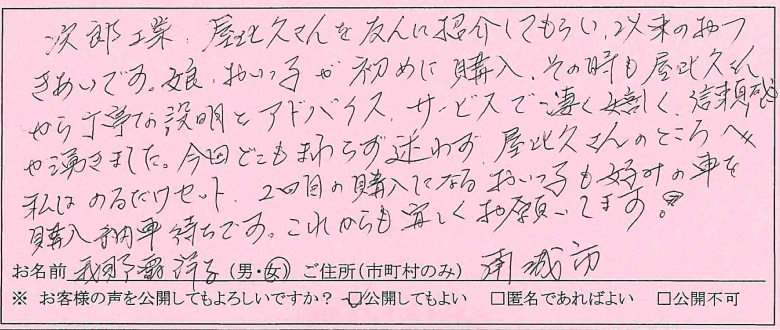 次郎工業、屋比久さんを友人に紹介してもらい、以来のおつ
きあいです。娘、おいっ子が初めに購入、その時も屋比久さん
から丁寧な説明とアドバイス、サービスで凄く嬉しく、信頼感
が湧きました。今回どこもまわらず迷わず、屋比久さんのところへ
私はのるだけセット、2回目の購入になるおいっ子も好みの車を
購入納車待ちです。これからも宜しくお願いします!
お名前 我那覇 洋子 (男・女) ご住所(市町村のみ) 南城市
※ お客様の声を公開してもよろしいですか? ☑公開してもよい □匿名であればよい □公開不可